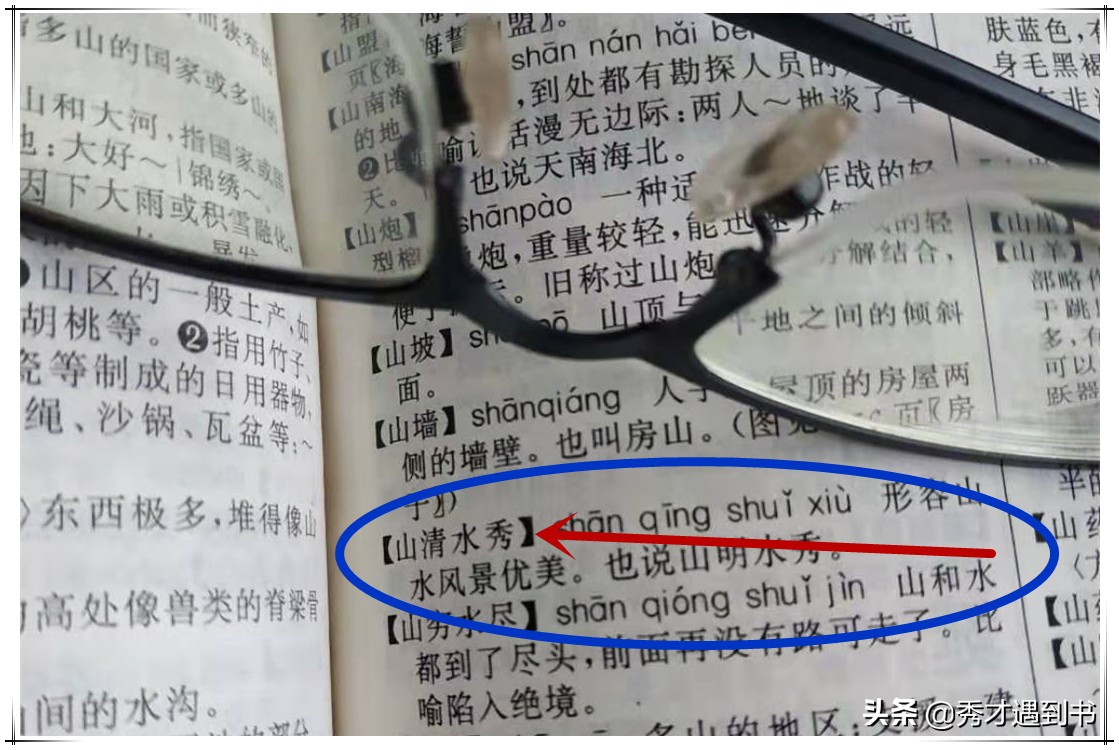 多山的国家或多山的
山和大河，指国家或国
地：大好～｜锦绣～
因下大雨或积雪融化，
山区的一般土产，如
胡桃等。❷指用竹子、
瓷等制成的日用器物，
绳、沙锅、瓦盆等：～
东西极多，堆得像山
高处像兽类的脊梁骨
间的水沟。
【山盟海誓
页〖海誓山盟〗。
【山南海 shān nán hǎi běi
的地 ，到处都有勘探人员的
❷比喻说话漫无边际：两人～地谈了半
天。 也说天南海北。
【山炮】 shānpào 一种适 作战的轻
型榴 炮，重量较轻，能迅速分解结合，
便于 。旧称过山炮。
【山坡】 shānpō 山顶与平地之间的倾斜
面。
【山墙】 shānqiáng 人字 屋顶的房屋两
侧的墙壁。也叫房山。（图见 页〖房
子〗）
【山清水秀】 shān qīng shuǐ xiù 形容山
水风景优美。也说山明水秀。
【山穷水尽】 shān qióng shuǐ jìn 山和水
都到了尽头，前面再没有路可走了。比
喻陷入绝境。
多山的地区
肤蓝色，
身毛黑褐
【山崖】
【山羊】
部略
于跳
多，
可以
跃器
半的
【山药
【山
【山
头条 @秀才遇到书